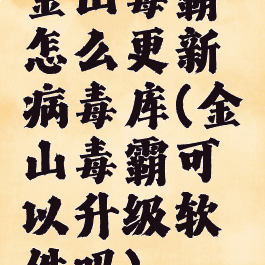 金山毒霸
怎么更新
病毒库(金
山毒霸可
以升级软
件吗)